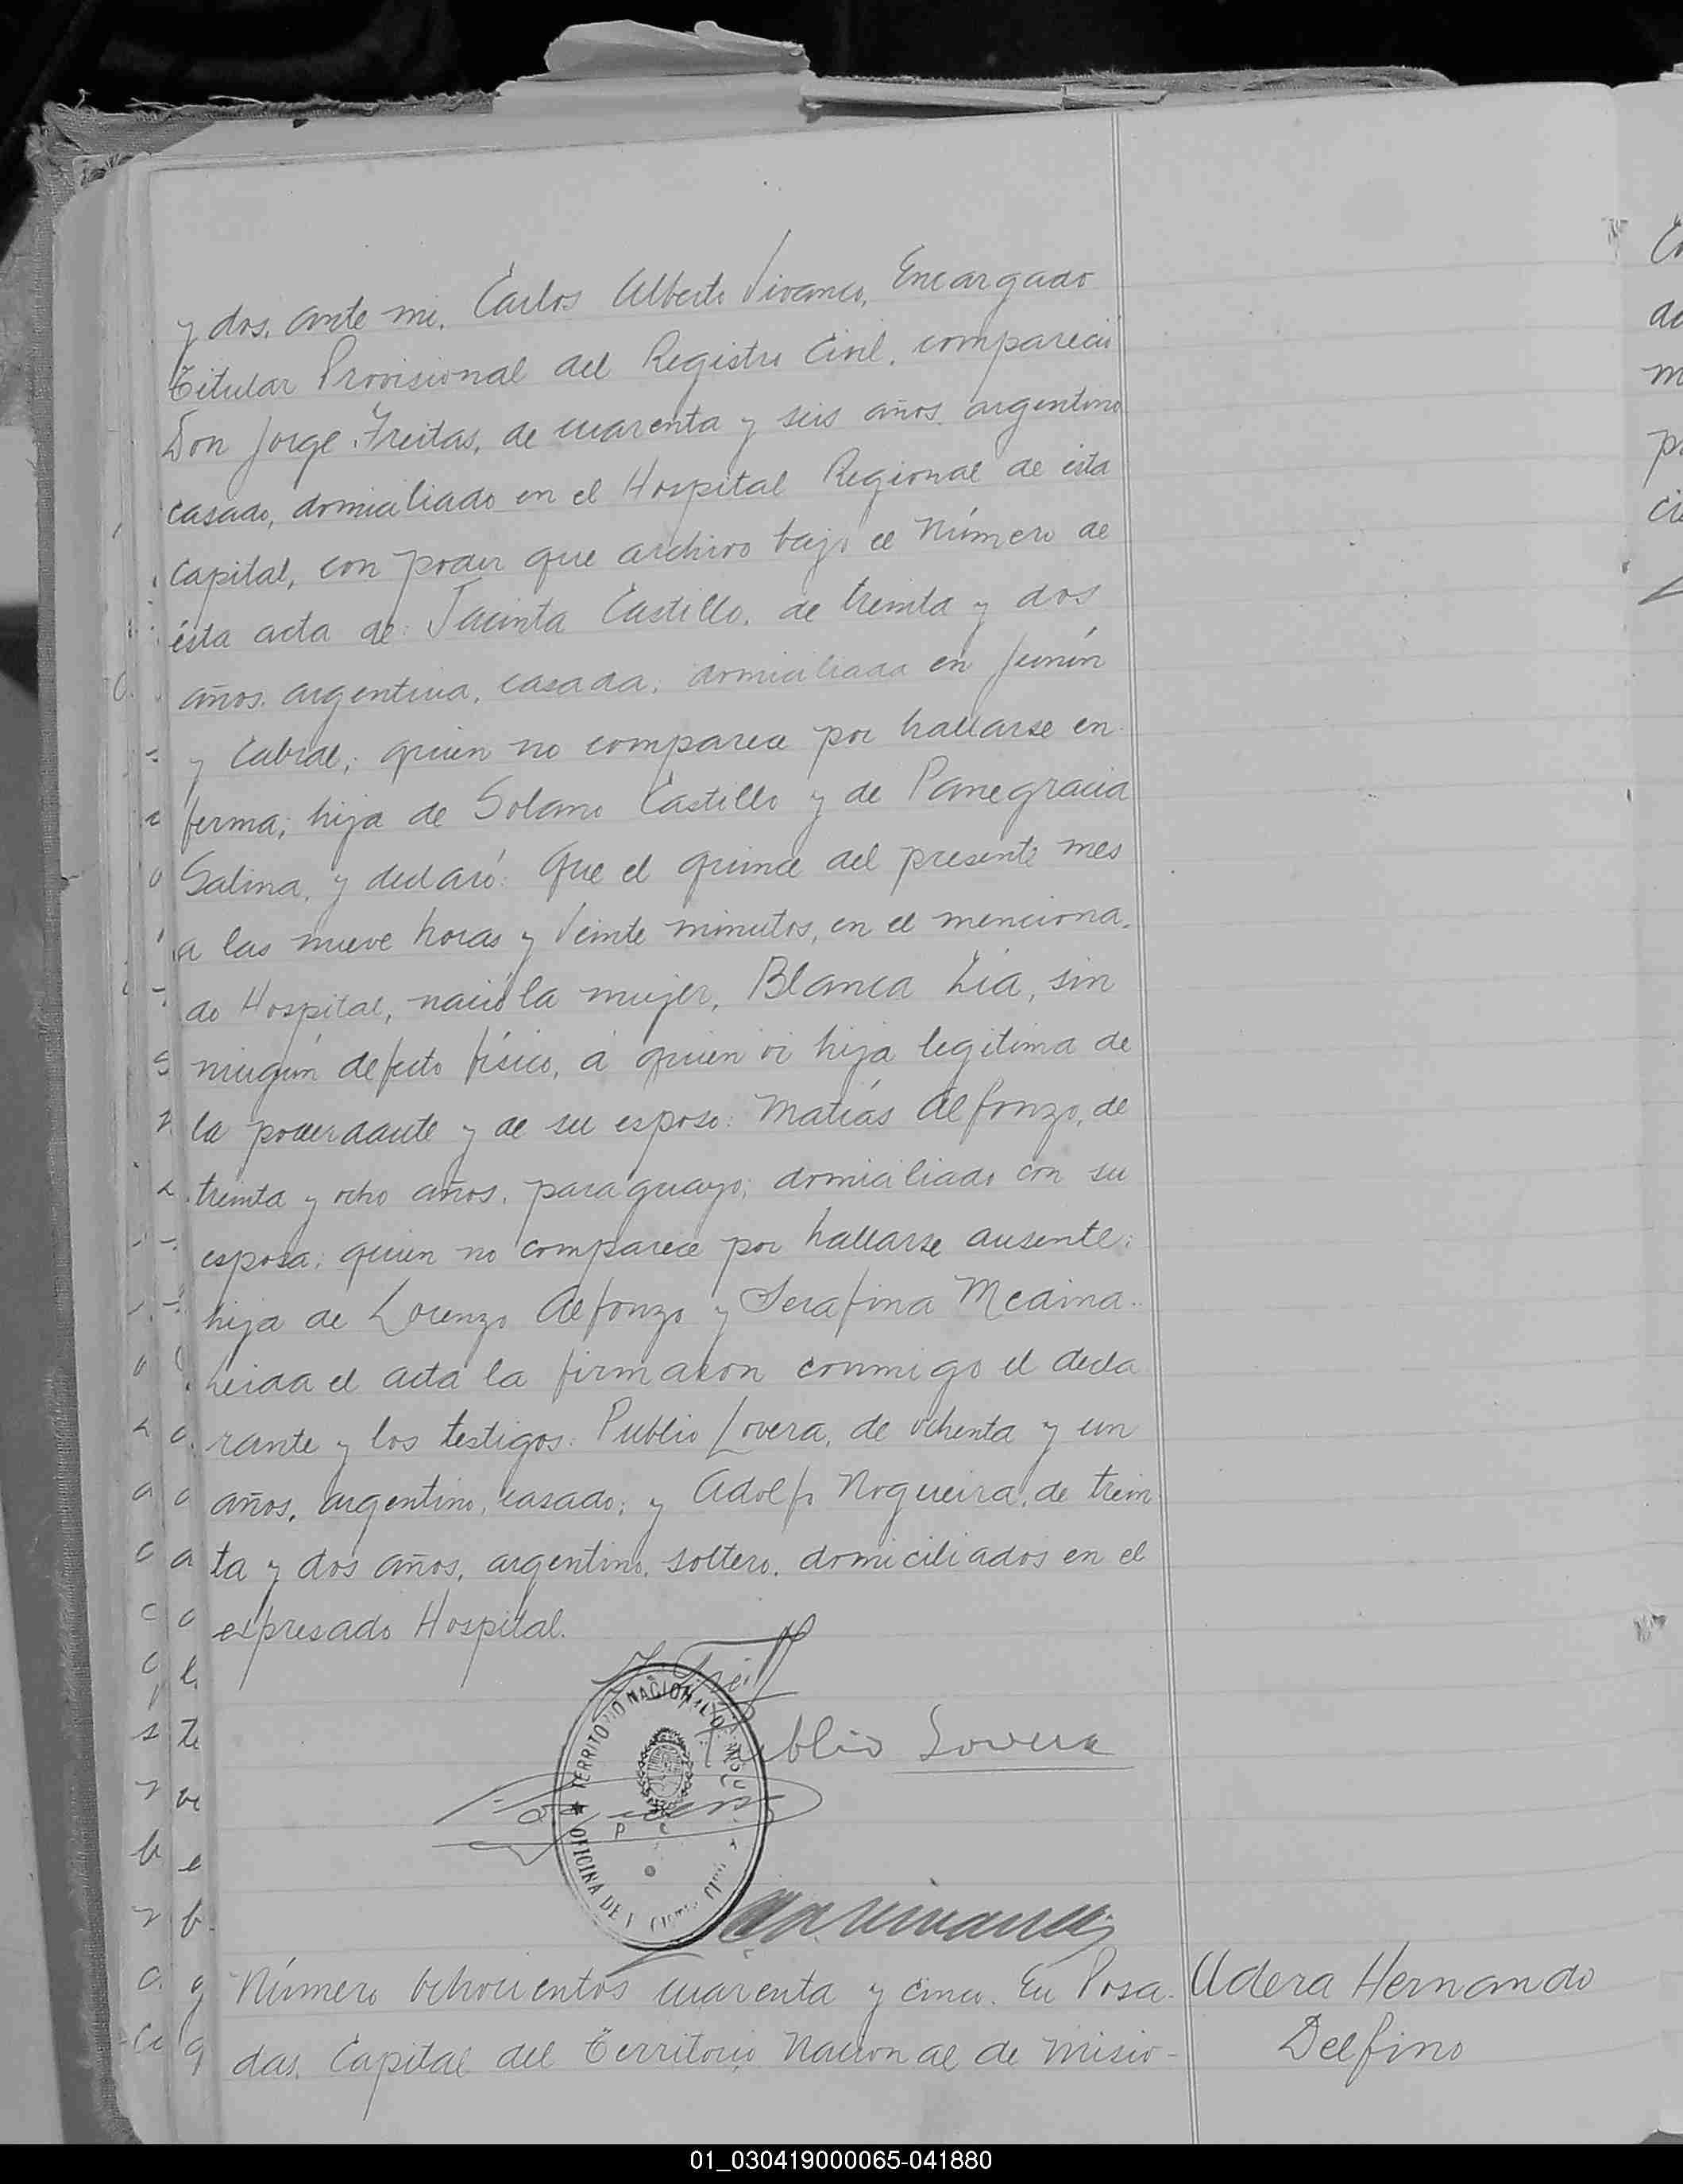 y dos, ante mi, Carlos Alberto Vivanco, Encargado
Titular Provisional del Registro Civil, compareció
Don Jorge Freitas, de cuarenta y seis años, argentino
casado, domiciliado en el Hospital Regional de ésta
Capital, con poder que archivo bajo el Número de
ésta acta de: Jacinta Castillo, de treinta y dos
años, argentina, casada, domiciliada en Junín
y Cabral; quien no comparece por hallarse en
ferma; hija de Solano Castillo y de Panegracia
Salina, y declaró: Que el quince del presente mes
a las nueve horas y veinte minutos, en el menciona-
do Hospital, nació la mujer, Blanca Lia, sin
ningún defecto físico, á quien vi hija legitima de
la poderdante y de su esposo: Matías Alfonzo, de
treinta y ocho años, paraguayo; domiciliado con su
esposa; quien no comparece por hallarse ausente;
hija de Lorenzo Alfonzo y Serafina Medina.
Leida el acta la firmaron conmigo el decla
rante y los testigos: Publio Lovera, de ochenta y un
años, argentino, casado; y Adolfo Nogueira, de trein
ta y dos años, argentino, soltero, domiciliados en el
expresado Hospital.
TERRITORIO NACIONAL DE
Publio Lovera
OFICINA DE
Número ochocientos cuarenta y cinco. En Posa-
das, Capital del Territorio Nacional de Misio-
Udera Hernando
Delfino
01_030419000065-041880